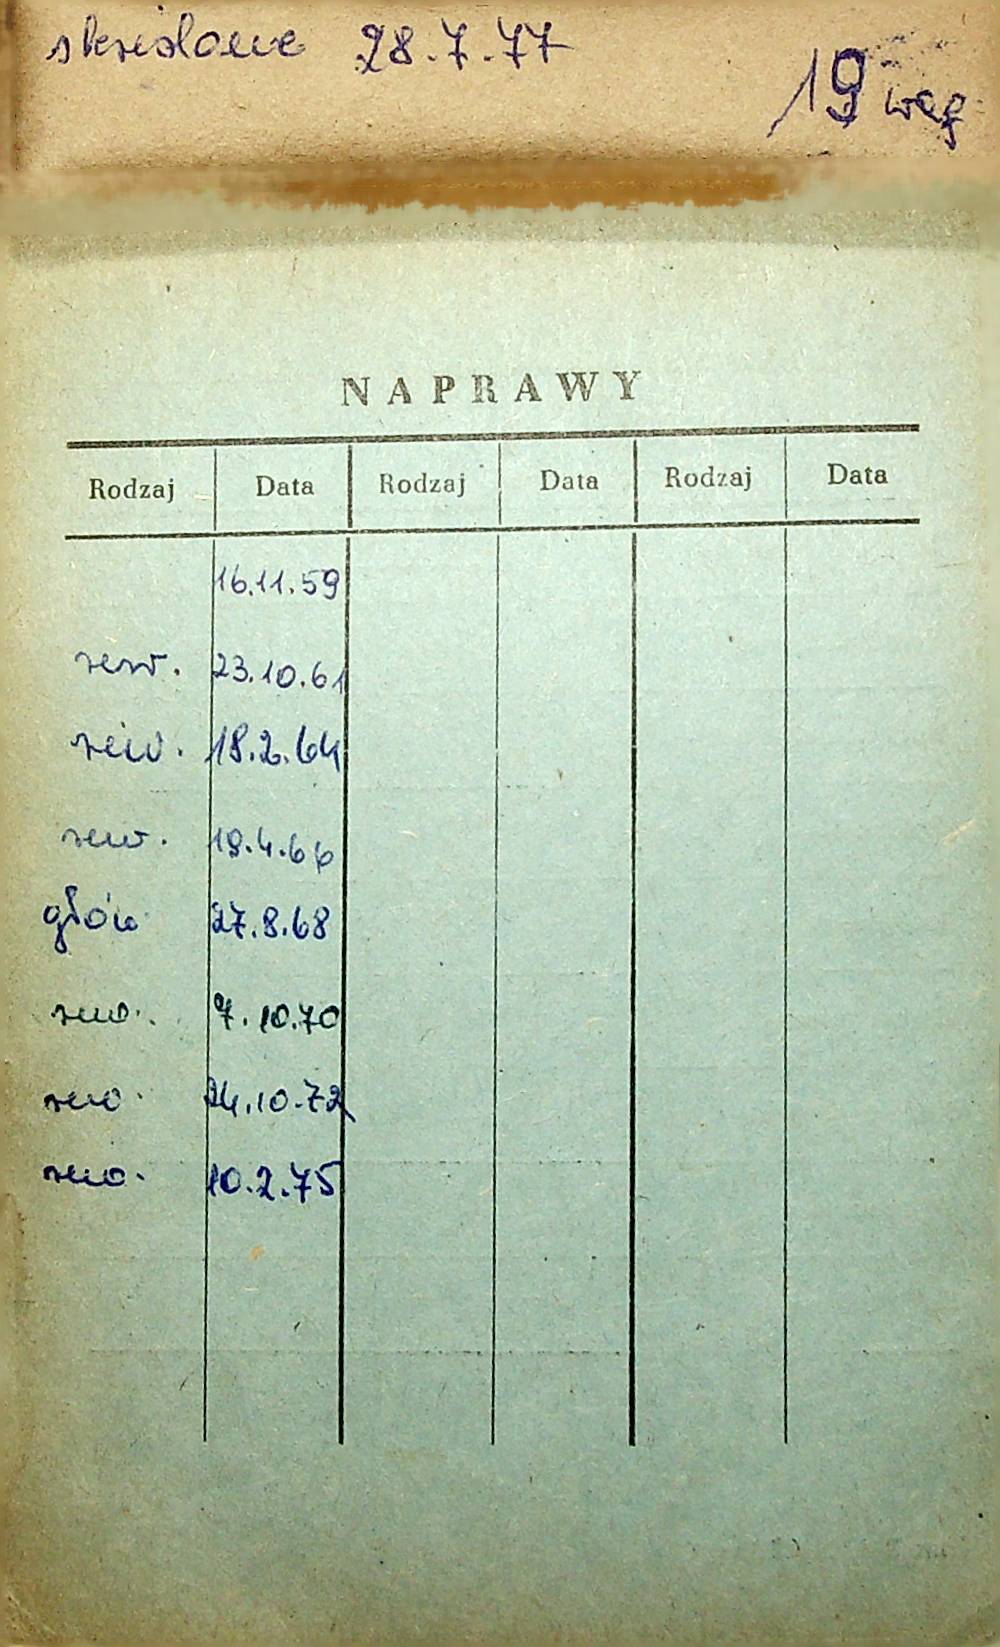 skreślone 28.7.77
19 węg
NAPRAWY
Rodzaj Data Rodzaj Data Rodzaj Data
16.11.59
rew. 23.10.61
rew. 18.2.64
rew. 19.4.66
głów 27.8.68
rew. 7.10.70
rew. 24.10.72
rew. 10.2.75